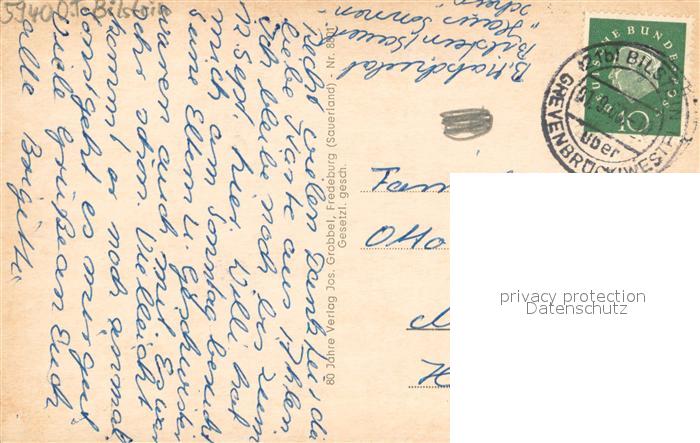 5940 OT-Bilstein
B.
Bilstein/Sauerl
"Haus Sonnen-
schein"
Recht vielen Dank für die
liebe Karte aus
Ich bleibe noch bis zum
12 Sept. hier. Willi hat
mich am Sonntag besucht
Seine Eltern u. Geschwister
waren auch mit. Es war
sehr schön. Vielleicht
kommt er noch
Sonst geht es mir gut
Viele Grüße an Euch
alle Brigitte
80 Jahre Verlag Jos. Grobbel, Fredeburg (Sauerland) - Nr. 8801
Gesetzl. gesch.
DEUTSCHE BUNDESPOST
10
(21b) BILSTEIN
über
GREVENBRÜCK (WESTF)
Fam
Otto
privacy protection
Datenschutz